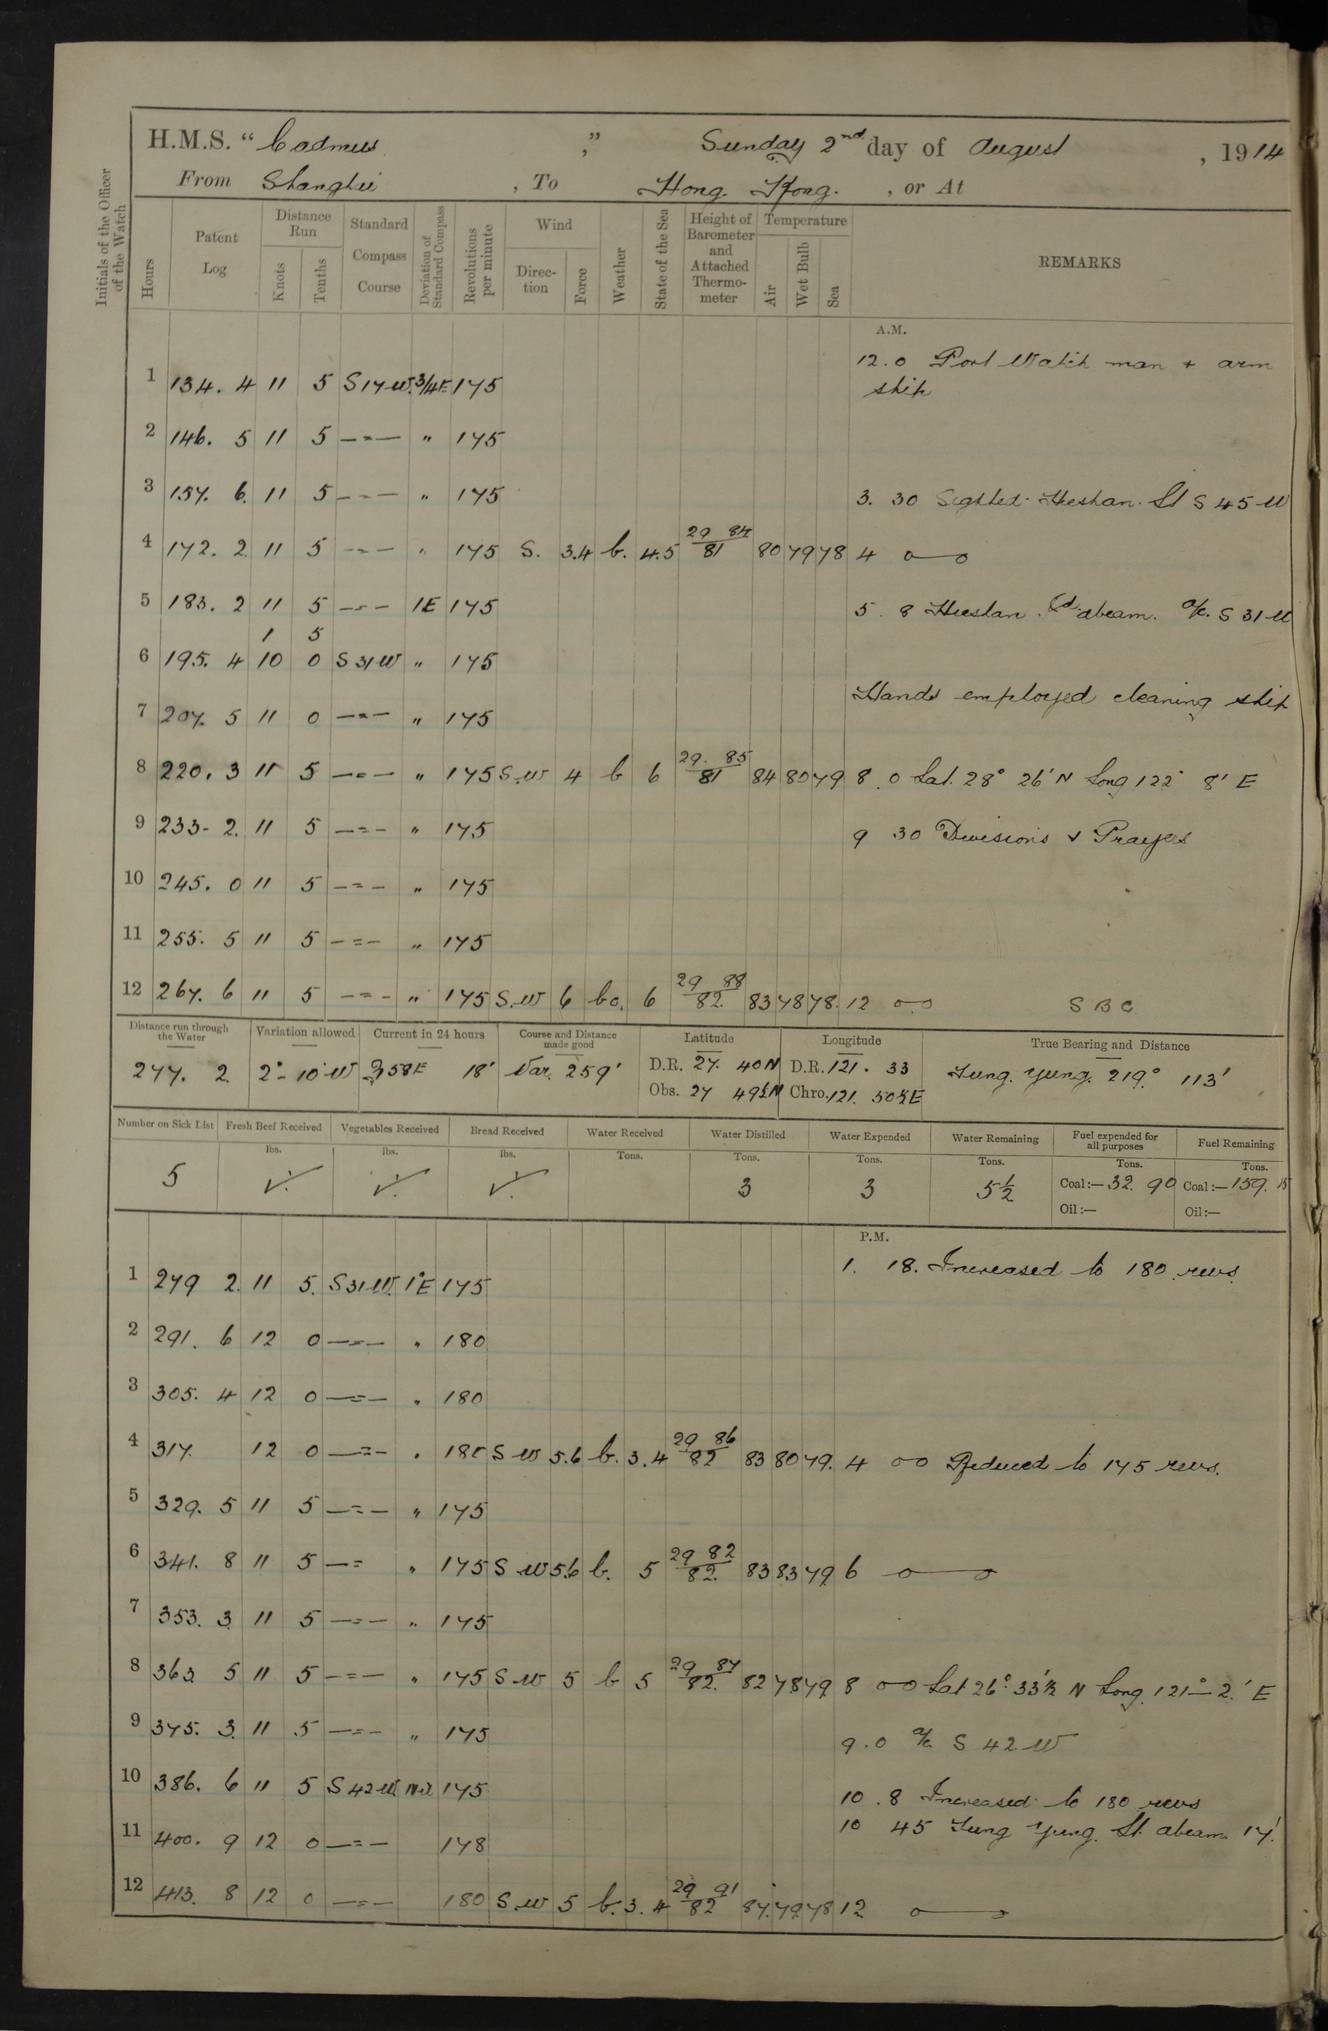 H.M.S. “ Cadmus ,” Sunday 2nd day of August , 1914
From Shanghai , To Hong Kong. , or At
Initials of the Officer of the Watch
Hours
Patent Log
Distance Run
Knots
Tenths
Standard Compass Course
Deviation of Standard Compass
Revolutions per minute
Wind
Direction
Force
Weather
State of the Sea
Height of Barometer and Attached Thermometer
Temperature
Air
Wet Bulb
Sea
REMARKS
A.M.
12.0 Port Watch man + arm
ship
1 134. 4 11 5 S 17 W. 3/4 E 175
2 146. 5 11 5 -=- " 175
3 157. 6. 11 5 -=- " 175 3. 30 Sighted Heshan. Lt S 45 W
4 172. 2 11 5 -=- " 175 S. 3.4 b. 4.5 29 84 / 81 80 79 78 4 o—o
5 183. 2 11 5 -=- 1E 175 5. 8 abeam. a/c. S 31 W
1 5
6 195. 4 10 0 S 31 W " 175
Hands employed cleaning ship
7 207. 5 11 0 -=- " 175
8 220. 3 11 5 -=- " 175 S.W 4 b 6 29. 85 / 81 84 80 79 8.0 Lat. 28° 26' N Long 122° 8' E
9 233. 2. 11 5 -=- " 175 9 30 Divisions & Prayers
10 245. 0 11 5 -=- " 175
11 255. 5 11 5 -=- " 175
12 267. 6 11 5 -=- " 175 S.W 6 bc. 6 29 88 / 82. 83 78 78. 12 o-o S B C
Distance run through the Water
Variation allowed
Current in 24 hours
Course and Distance made good
Latitude
Longitude
True Bearing and Distance
277. 2. 2°-10' W 58 E 18' Var. 259' D.R. 27. 40 N D.R. 121. 33 Tung. Yung. 219.° 113'
Obs. 27 49½ N Chro. 121. 50½ E
Number on Sick List
Fresh Beef Received
Vegetables Received
Bread Received
Water Received
Water Distilled
Water Expended
Water Remaining
Fuel expended for all purposes
Fuel Remaining
lbs. lbs. lbs. Tons. Tons. Tons. Tons. Tons. Tons.
5 ✓. ✓. ✓. 3 3 5½ Coal:— 32. 90 Coal:— 159. 15
Oil:— Oil:—
P.M.
1. 18. Increased to 180 revs.
1 279 2. 11 5. S 31 W. 1°E 175
2 291. 6 12 0 -=- " 180
3 305. 4 12 0 -=- " 180
4 317. 12 0 -=- " 180 S W 5.6 b. 3.4 29 86 / 82 83 80 79. 4 oo Reduced to 175 revs.
5 329. 5 11 5 -=- " 175
6 341. 8 11 5 -= " 175 S W 5.6 b. 5 29 82 / 82. 83 83 79 6 o—o
7 353. 3 11 5 -=- " 175
8 363 5 11 5 -=- " 175 S.W 5 b 5 29 87 / 82. 82 78 79 8 oo Lat 26° 33'½ N Long. 121°-2.' E
9 375. 3. 11 5 -=- " 175 9.0 a/c S 42 W
10 386. 6 11 5 S 42 W. Nil 175 10.8 Increased to 180 revs
10 45 Tung Yung. Lt. abeam 17'.
11 400. 9 12 0 -=- 178
12 413. 8 12 0 -=- 180 S.W 5 b. 3.4 29 91 / 82 87. 79 78 12. o—o